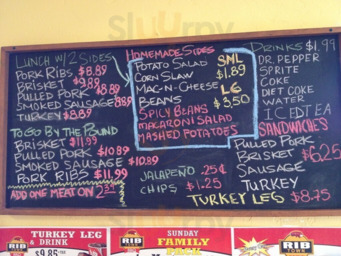 Slurrpy
LUNCH W/ 2 SIDES
PORK RIBS $8.89
BRISKET $9.89
PULLED PORK $8.89
SMOKED SAUSAGE 8.89
TURKEY $8.89
TO GO BY THE POUND
BRISKET $11.99
PULLED PORK $10.89
SMOKED SAUSAGE $10.89
PORK RIBS $11.99
ADD ONE MEAT ON
HOMEMADE SIDES
POTATO SALAD SML
CORN SLAW $1.89
MAC-N-CHEESE LG
BEANS $3.50
SPICY BEANS
MACARONI SALAD
MASHED POTATOES
JALAPEÑO .25¢
CHIPS $1.25
DRINKS $1.99
DR. PEPPER
SPRITE
COKE
DIET COKE
WATER
ICED TEA
SANDWICHES
PULLED PORK
BRISKET $6.25
SAUSAGE
TURKEY
TURKEY LEG $8.75
TURKEY LEG
& DRINK
$9.85
RIB
SUNDAY
FAMILY
PACK
RIB
RIB